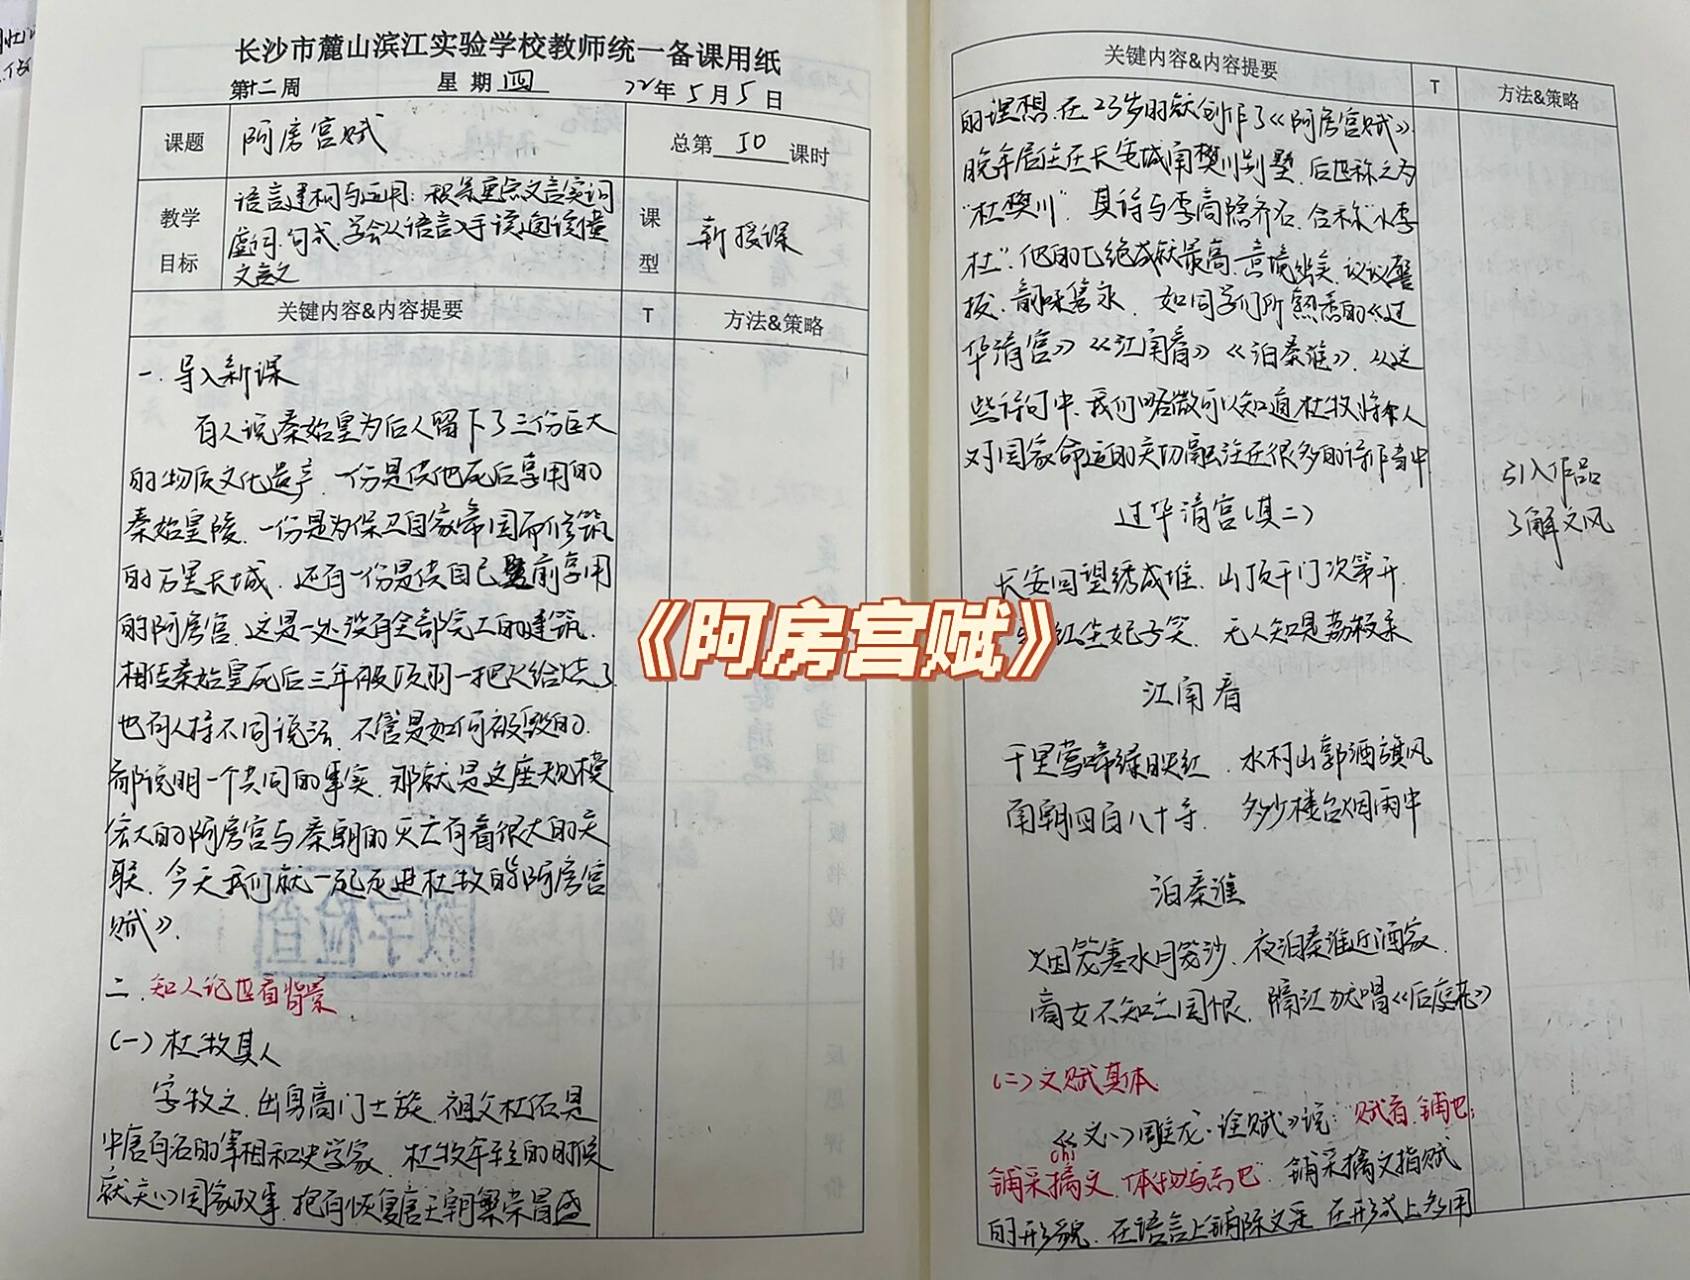 长沙市麓山滨江实验学校教师统一备课用纸
第十二周 星期四 22年5月5日
课题 阿房宫赋 总第 10 课时
教学目标 语言建构与运用：积累重点文言实词
虚词.句式.学会从语言入手读通读懂
文言文
课型 新授课
关键内容&内容提要 T 方法&策略
一.导入新课
有人说秦始皇为后人留下了三份巨大
的物质文化遗产.一份是供他死后享用的
秦始皇陵.一份是为保卫自家帝国而修筑
的万里长城.还有一份是供自己生前享用
的阿房宫.这是一处没有全部完工的建筑.
相传秦始皇死后三年被项羽一把火给烧了
也有人持不同说法.不管是如何被毁的.
都说明一个共同的事实.那就是这座规模
宏大的阿房宫与秦朝的灭亡有着很大的关
联.今天我们就一起走进杜牧的《阿房宫
赋》.
教学检查
二.知人论世看背景
(一)杜牧其人
字牧之.出身高门士族.祖父杜佑是
中唐有名的宰相和史学家.杜牧年轻的时候
就关心国家政事.抱有恢复唐王朝繁荣昌盛
《阿房宫赋》
关键内容&内容提要 T 方法&策略
的理想.在23岁的时候创作了《阿房宫赋》.
晚年居住在长安城南樊川别墅.后世称之为
"杜樊川".其诗与李商隐齐名.合称"小李
杜".他的七绝成就最高.意境幽美.议论警
拔.韵味隽永.如同学们所熟悉的《过
华清宫》《江南春》《泊秦淮》.从这
些诗句中.我们略微可以知道杜牧将个人
对国家命运的关切融注在很多的诗作当中
引入作品
了解文风
过华清宫(其二)
长安回望绣成堆.山顶千门次第开.
红尘妃子笑.无人知是荔枝来
江南春
千里莺啼绿映红.水村山郭酒旗风
南朝四百八十寺.多少楼台烟雨中
泊秦淮
烟笼寒水月笼沙.夜泊秦淮近酒家.
商女不知亡国恨.隔江犹唱《后庭花》
(二)文赋其体
《文心雕龙·诠赋》说："赋者.铺也;
chī
铺采摛文.体物写志也".铺采摛文指赋
的形貌.在语言上铺陈文采.在形式上多用